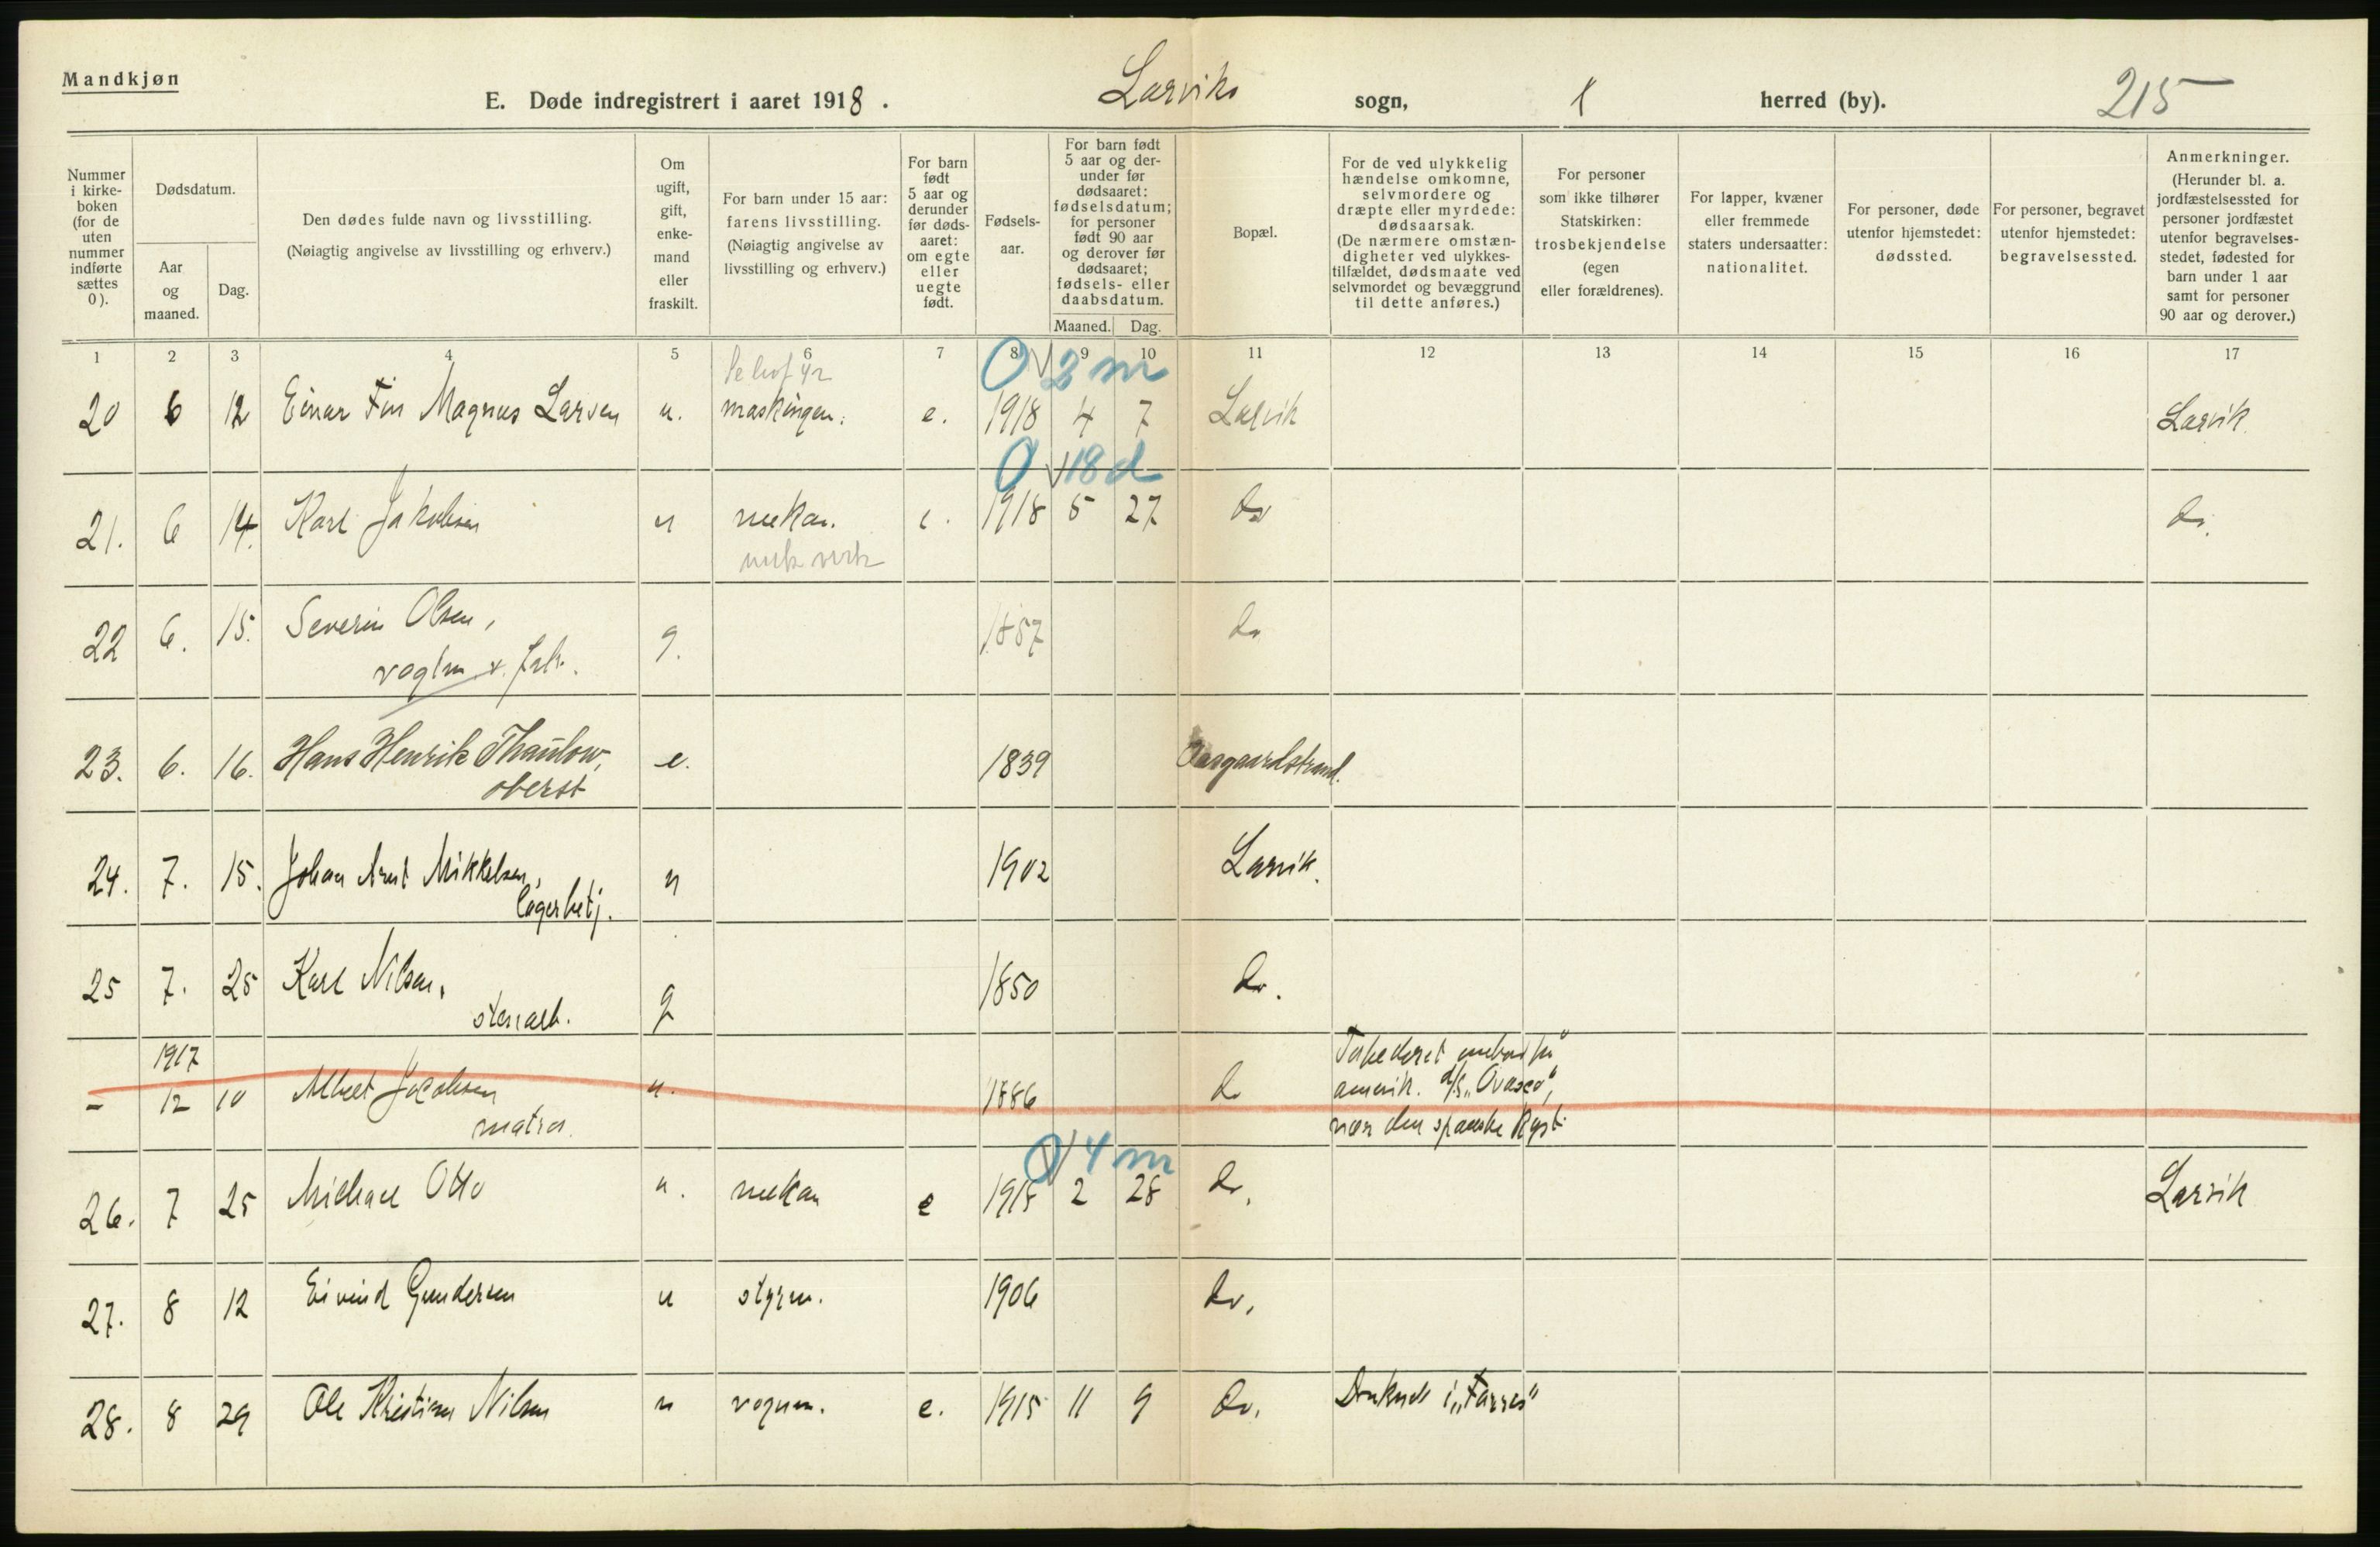 Mandkjøn
E. Døde indregistrert i aaret 1918. Larviks sogn, herred (by). 215
Nummer i kirke-boken (for de uten nummer indførte sættes 0).
Dødsdatum.
Aar og maaned.
Dag.
Den dødes fulde navn og livsstilling.
(Nøiagtig angivelse av livsstilling og erhverv.)
Om ugift, gift, enke-mand eller fraskilt.
For barn under 15 aar: farens livsstilling.
(Nøiagtig angivelse av livsstilling og erhverv.)
For barn født 5 aar og derunder før døds-aaret: om egte eller uegte født.
Fødsels-aar.
For barn født 5 aar og der-under før dødsaaret: fødselsdatum; for personer født 90 aar og derover før dødsaaret; fødsels- eller daabsdatum.
Maaned. Dag.
Bopæl.
For de ved ulykkelig hændelse omkomne, selvmordere og dræpte eller myrdede: dødsaarsak.
(De nærmere omstæn-digheter ved ulykkes-tilfældet, dødsmaate ved selvmordet og bevæggrund til dette anføres.)
For personer som ikke tilhører Statskirken: trosbekjendelse (egen eller forældrenes).
For lapper, kvæner eller fremmede staters undersaatter: nationalitet.
For personer, døde utenfor hjemstedet: dødssted.
For personer, begravet utenfor hjemstedet: begravelsessted.
Anmerkninger.
(Herunder bl. a. jordfæstelsessted for personer jordfæstet utenfor begravelses-stedet, fødested for barn under 1 aar samt for personer 90 aar og derover.)
1 2 3 4 5 6 7 8 9 10 11 12 13 14 15 16 17
0 2 m
20 6 12 Einar Fin Magnus Larsen u. maskingen. e. 1918 4 7 Larvik Larvik
0 18 d
21. 6 14. Karl Jakobsen u mekan. e. 1918 5 27 do do.
mek verk
22 6. 15. Severin Olsen, g. 1857 do
vogtm v. fabr.
23. 6. 16. Hans Henrik Thaulow, e. 1839 Aasgaardstrand.
oberst
24. 7. 15. Johan Arnt Mikkelsen, u 1902 Larvik.
lagerbetj.
25 7. 25 Karl Nilsen, g 1850 do.
stenarb.
1917
– 12 10 Albert Jacobsen u. 1886 do Torpederet ombord paa
matros. amerik. d/s „Ovasco",
nær den spanske Kyst.
0 4 m
26. 7 25 Michael Otto u. mekan e 1918 2 28 do. Larvik
27. 8 12 Eivind Gundersen u styrm. 1906 do.
28. 8 29 Ole Kristian Nilsen u vognm. e. 1915 11 9 do. Druknet i „Farris"